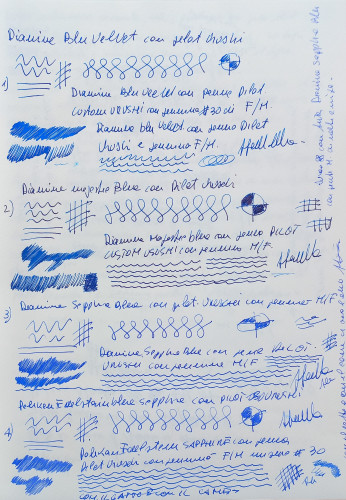 Diamine Blu Velvet con pilot Urushi
1)
Diamine Blu Velvet con penna Pilot
custom URUSHI con pennino #30 di F/M.
Diamine blu velvet con penna Pilot
Urushi e pennino F/M.
Diamine majestic Blue con Pilot Urushi
2)
Diamine Majestic blue con penna PILOT
CUSTOM URUSHI con pennino M/F.
3)
Diamine Sapphire Blue con pilot Urushi con pennino M/F
Diamine Sapphire Blue con penna PILOT
URUSHI con pennino M/F
Pelikan Edelstein blue sapphire con PILOT URUSHI
4)
Pelikan Edelstein SAPPHIRE con penna
Pilot Urushi con pennino F/M numero # 30
con Diamine Sapphire Blu